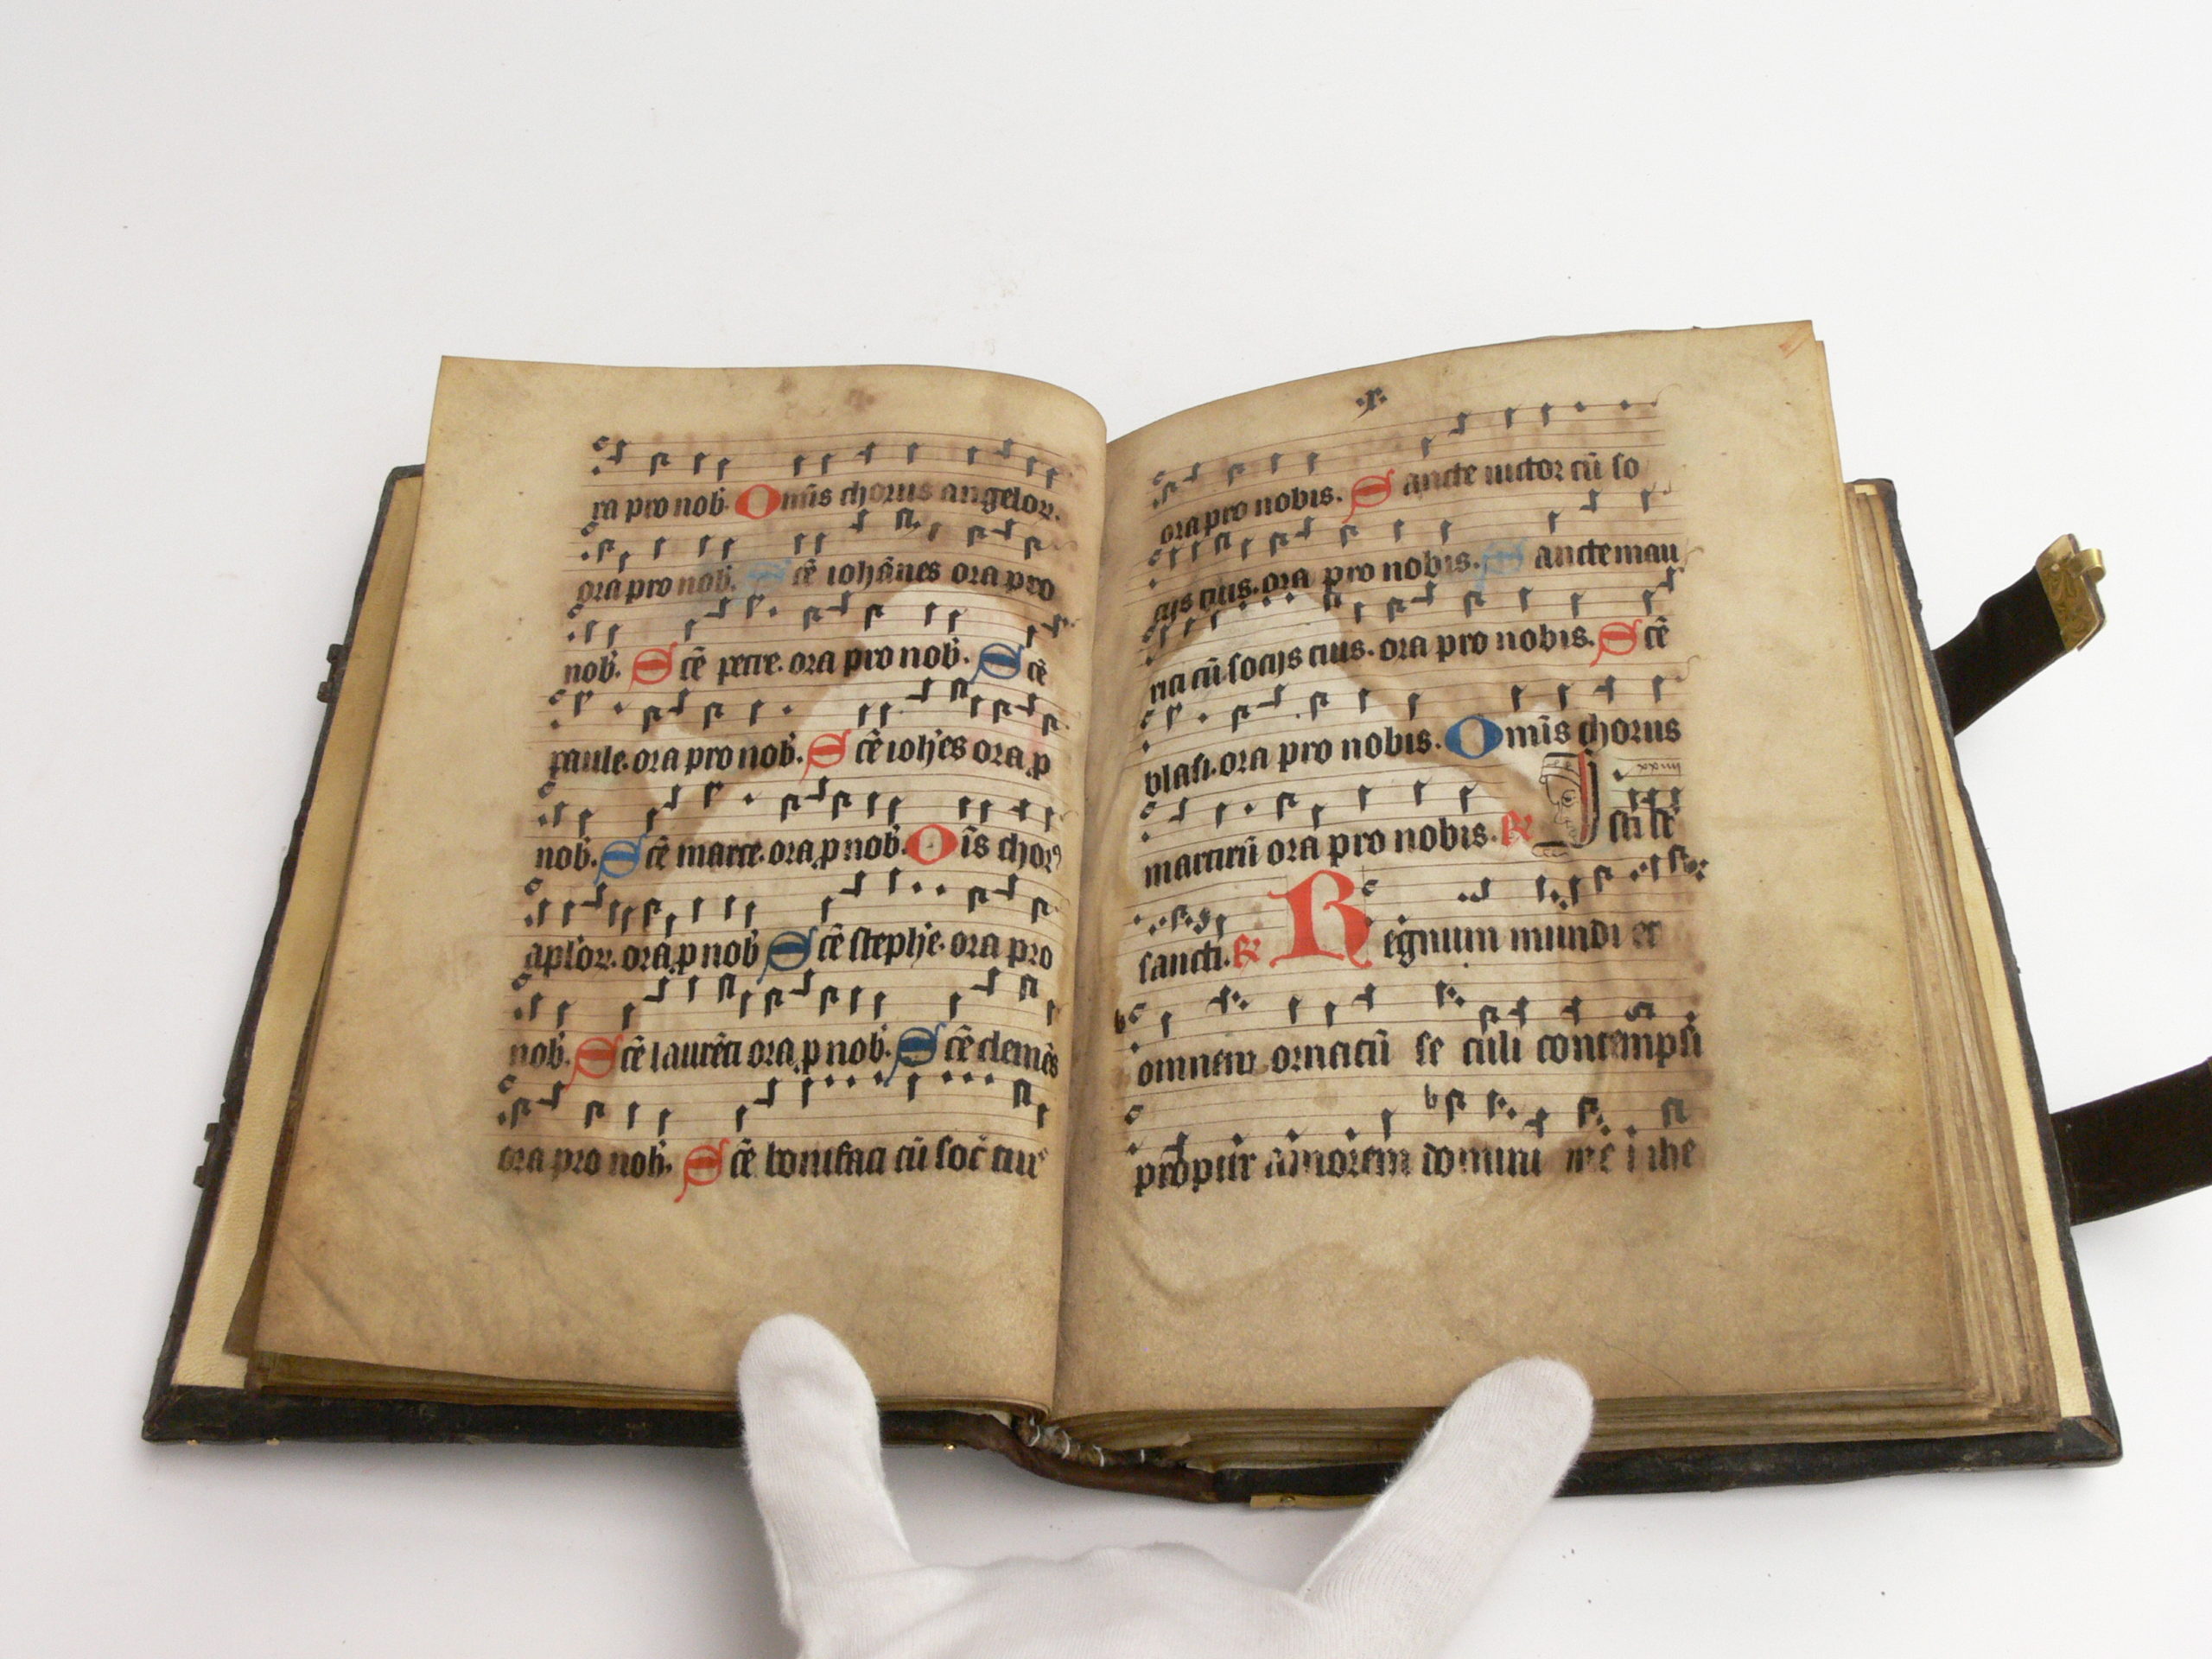 ra pro nob. Omīs chorus angelor.
ora pro nob. Scē iohānes ora pro
nob. Scē petre. ora pro nob. Scē
paule. ora pro nob. Scē ioh'es ora p
nob. Scē marce. ora p nob. Oīs chor9
aplor. ora p nob Scē steph'e. ora pro
nob. Scē laurēti ora p nob. Scē clemēs
ora pro nob. Scē bonifaci cū soc̄ tuis
.x.
ora pro nobis. Sancte uictor cū so
cijs tuis. ora pro nobis. Sancte mau
rici cū socijs tuis. ora pro nobis. Scē
blasi. ora pro nobis. Omīs chorus
martirū ora pro nobis. Isti sūt
sancti. Regnum mundi et
omnem ornatū se culi contempsi
propter amorem domini mei ihe